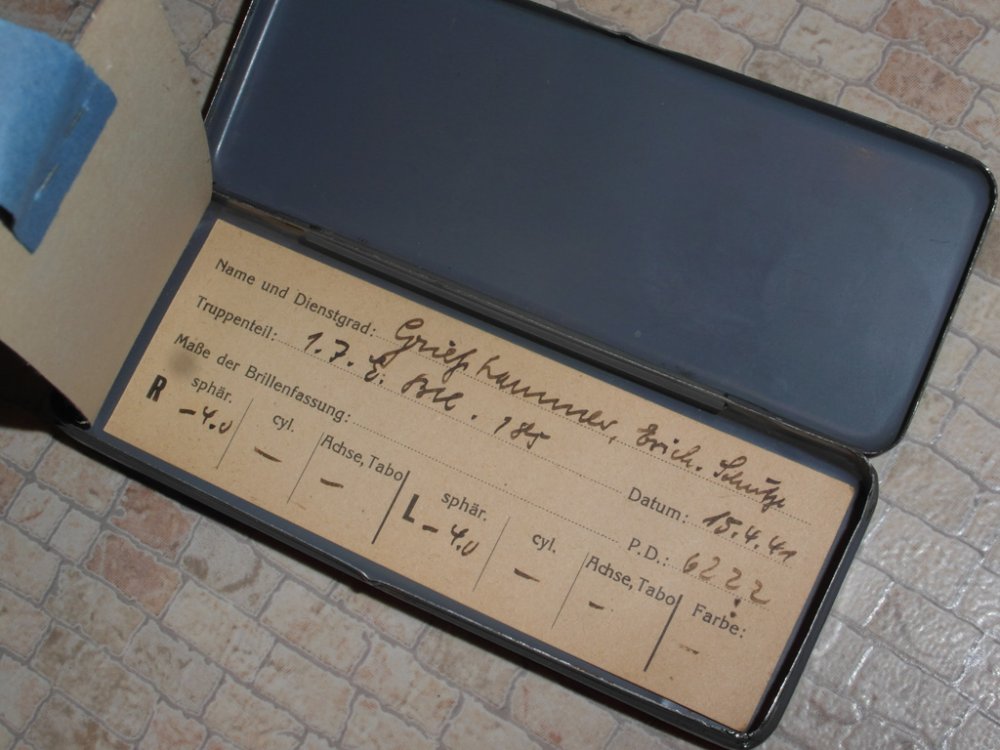 Name und Dienstgrad: Grießhammer, Erich. Schütze
Truppenteil: 1. J. E. Btl. 185 Datum: 15.4.41
Maße der Brillenfassung: P.D.: 62
R sphär. cyl. Achse, Tabo L sphär. cyl. Achse, Tabo Farbe:
-4.0 – – -4.0 – – –